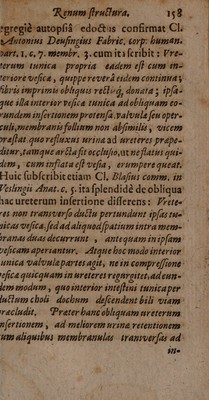 Renum structura. 158
egregiè autopsiâ edoctus confirmat Cl.
Antonius Deusingius Fabric. corp. human.
part. 1. c. 7. membr. 3. cum it a scribit : Vre-
terum tunica propria eadem est cum in-
teriore vesicæ, quippe reverâ eidem continua;
fibris imprimis obliquis rectisq́; donata; ipsa-
que illa interior vesicæ tunica ad obliquam eo-
rundem insertionem protensa, valvulæ seu oper-
culi, membranis follium non absimilis, vicem
præstat quo refluxus urinæ ad ureteres præpe-
ditur, tamque arctà fit occlusio, ut ne flatus qui-
dem, cum inflata est vesica, erumpere queat.
Huic subscribit etiam Cl. Blasius comm. in
Veslingii Anat. c. 5. ita splendidè de obliqua
hac ureterum insertione disserens: Vrete-
res non transverso ductu pertundunt ipsas tu-
nicas vesicæ, sed ad aliquod spatium intra mem-
branas duas decurrunt, antequam in ipsam
vesicam aperiantur. Atque hoc modo interior
tunica valvulæ partes agit, ne in compressione
vesicæ quicquam in ureteres regurgitet, ad eun-
dem modum, quo interior intestini tunica per
ductum choli dochum descendenti bili viam
præcludit. Præter hanc obliquam ureterum
insertionem, ad meliorem urinæ retentionem
cum aliquibus membranulas transversas ad
in-